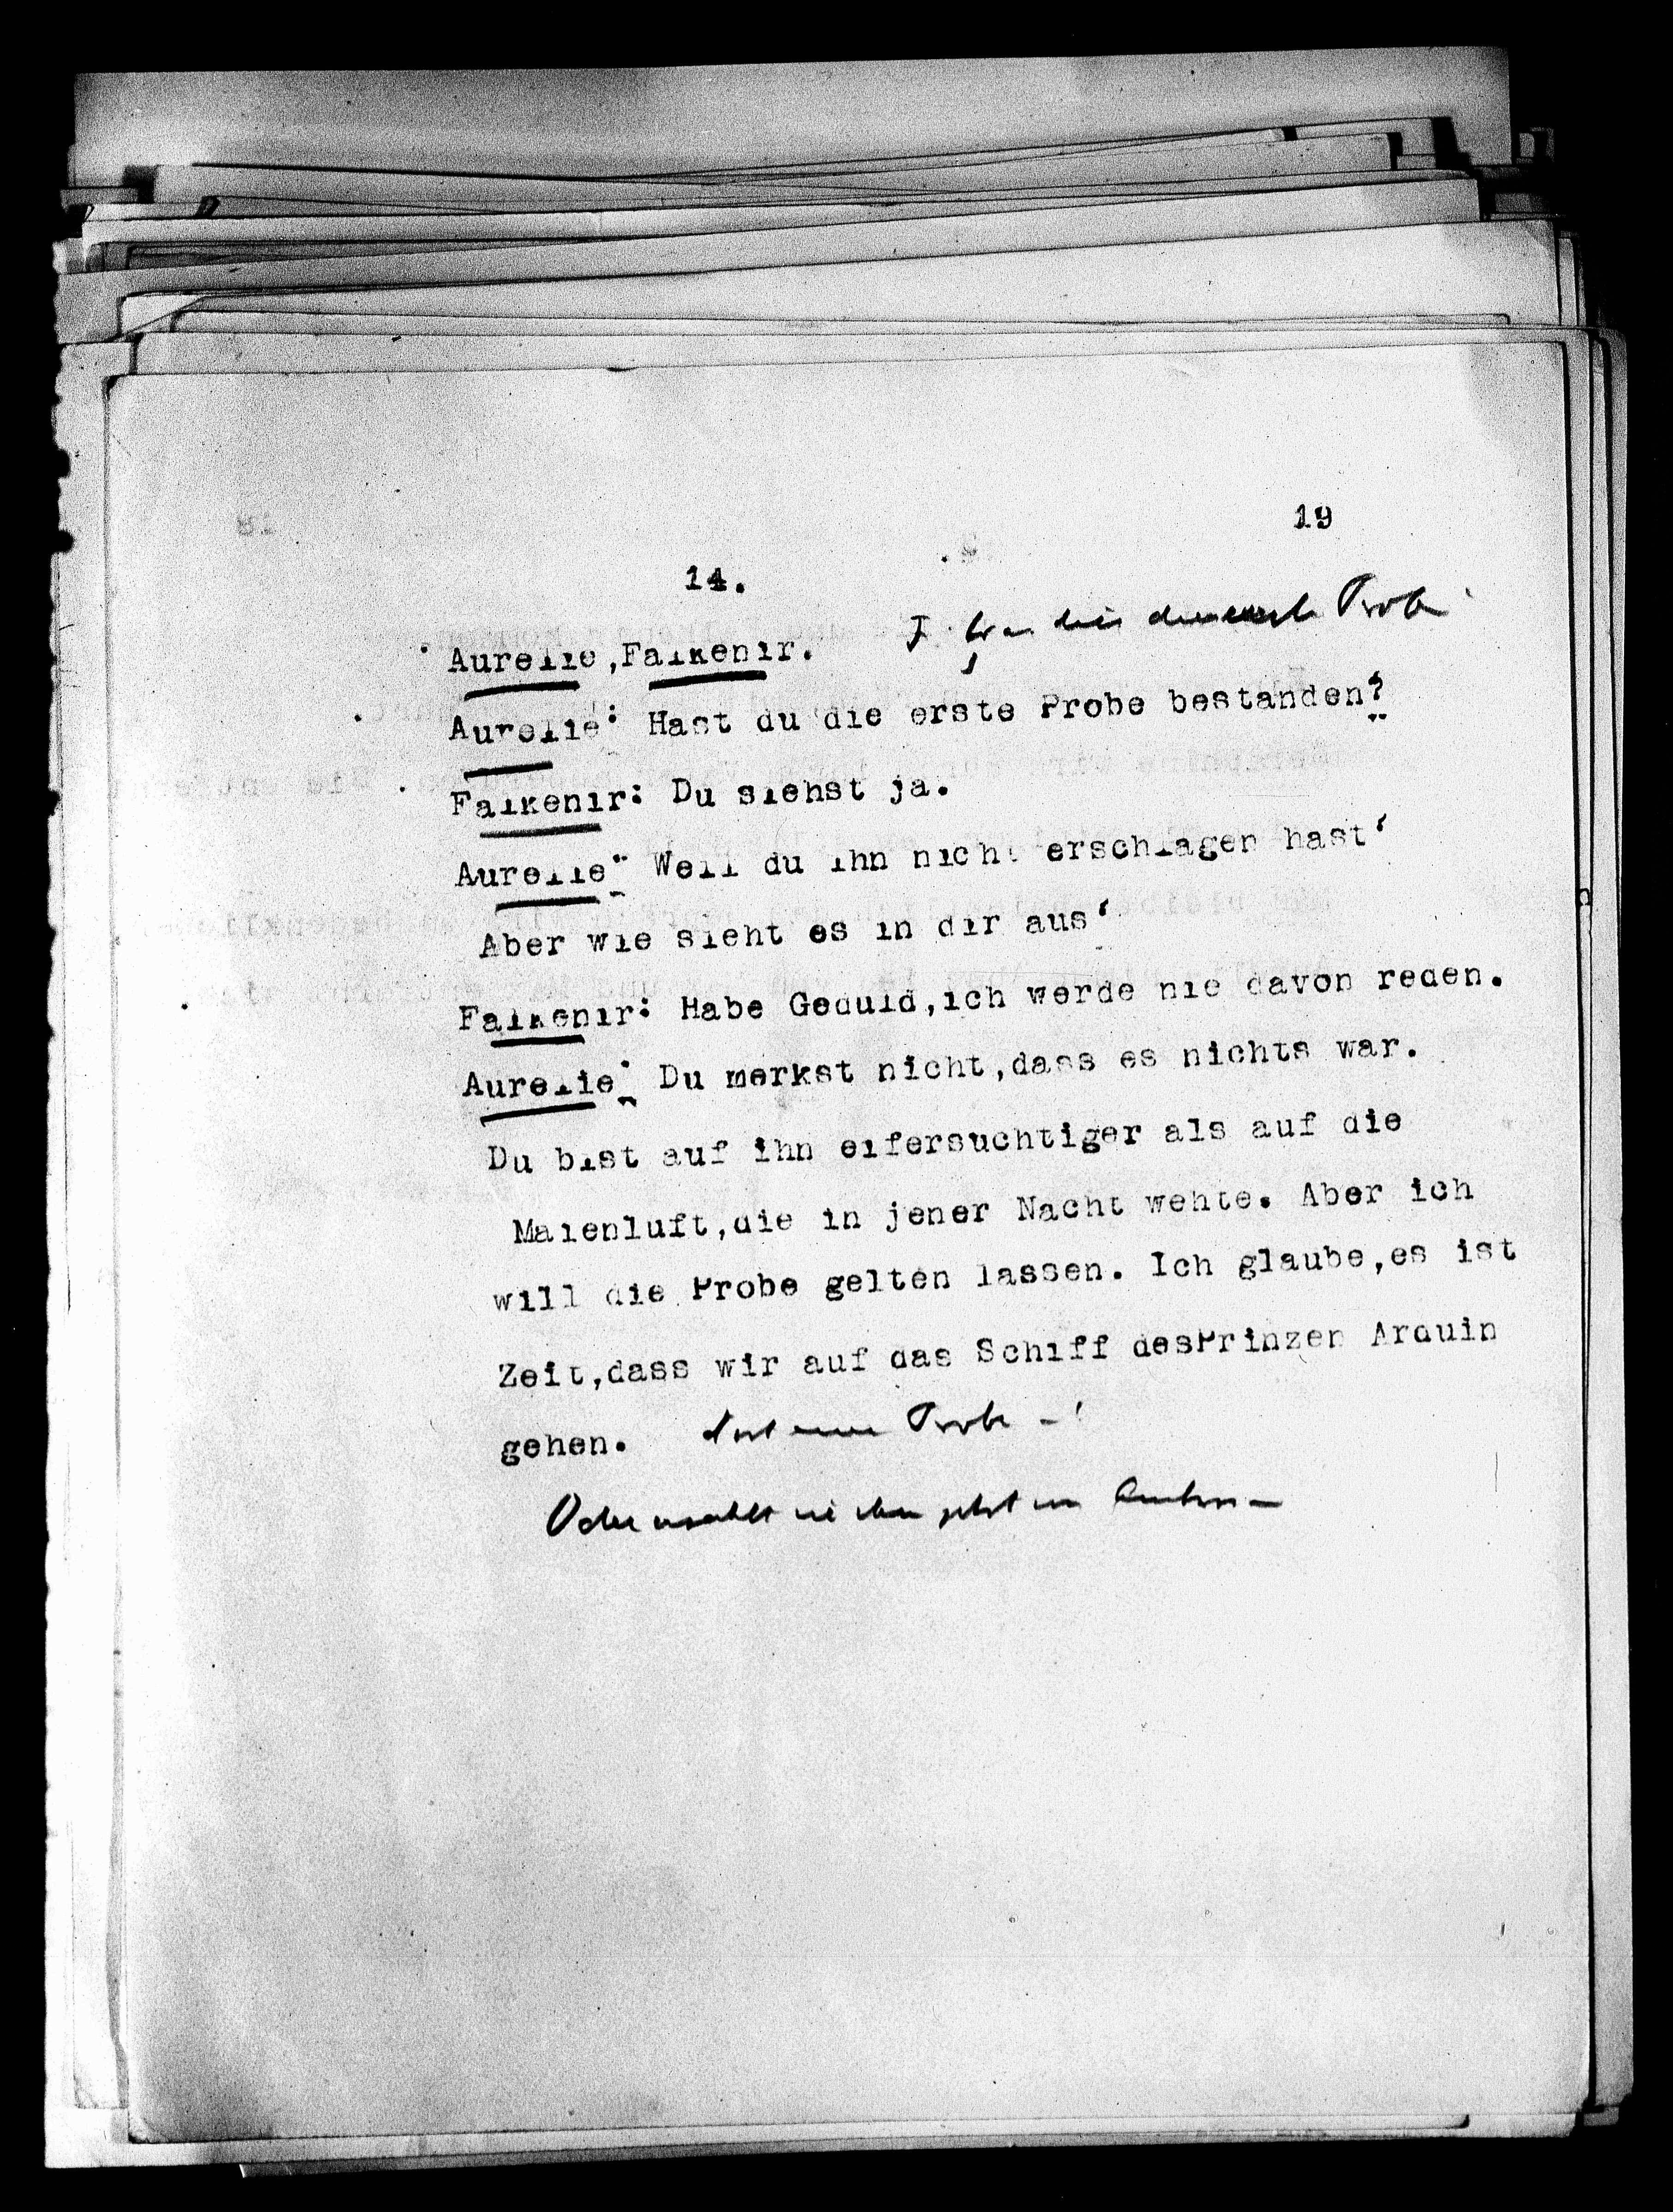 19
14.
Aurelie,Falkenir.
Probe
Aurelie: Hast du die erste Probe bestanden?
Falkenir: Du siehst ja.
Aurelie: Weil du ihn nicht erschlagen hast'
Aber wie sieht es in dir aus'
Falkenir: Habe Geduld,ich werde nie davon reden.
Aurelie: Du merkst nicht,dass es nichts war.
Du bist auf ihn eifersuchtiger als auf die
Maienluft,die in jener Nacht wehte. Aber ich
will die Probe gelten lassen. Ich glaube,es ist
Zeit,dass wir auf das Schiff desPrinzen Arduin
gehen. Probe -!
Oder